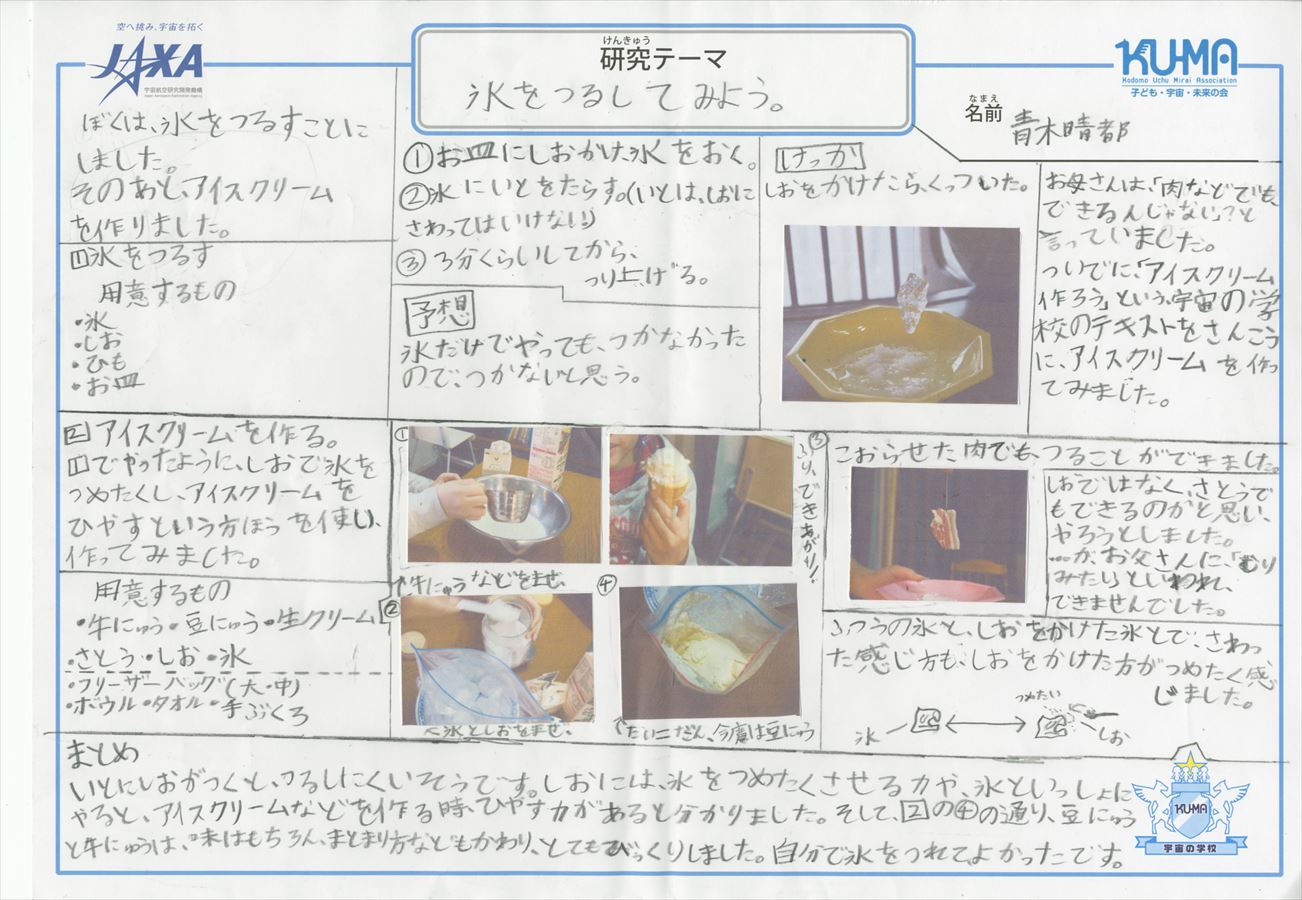 空へ挑み、宇宙を拓く
JAXA
宇宙航空研究開発機構
Japan Aerospace Exploration Agency
けんきゅう
研究テーマ
氷をつるしてみよう。
KU-MA
Kodomo Uchu Mirai Association
子ども・宇宙・未来の会
なまえ
名前
青木晴都
ぼくは、氷をつるすことに
しました。
そのあと、アイスクリーム
を作りました。
1氷をつるす
用意するもの
・氷
・しお
・ひも
・お皿
①お皿にしおかけ、氷をおく。
②氷にいとをたらす。(いとは、しおに
さわってはいけない!)
③3分くらいしてから、
つり上げる。
予想
氷だけでやっても、つかなかった
ので、つかないと思う。
けっか
しおをかけたら、くっついた。
お母さんは、「肉などでも
できるんじゃない?」と
言っていました。
ついでに、「アイスクリーム
作ろう」という、宇宙の学
校のテキストをさんこう
に、アイスクリームを作っ
てみました。
2アイスクリームを作る。
1でやったように、しおで氷を
つめたくし、アイスクリームを
ひやすという方ほうを使い、
作ってみました。
用意するもの
・牛にゅう・豆にゅう・生クリーム
・さとう・しお・氷
・フリーザーバッグ(大・中)
・ボウル・タオル・手ぶくろ
①
↑牛にゅうなどをまぜ、
②
↑氷としおをまぜ、
③
ふり、できあがり!
④
↑だい二だん、今度は豆にゅう
こおらせた肉でも、つることができました。
しおではなく、さとうで
もできるのかと思い、
やろうとしました。
…が、お父さんに、「むり
みたい」といわれ、
できませんでした。
ふつうの氷と、しおをかけた氷とで、さわっ
た感じ方も、しおをかけた方がつめたく感
じました。
つめたい
氷
しお
まとめ
いとにしおがつくと、つるしにくいそうです。しおには、氷をつめたくさせる力や、氷といっしょに
やると、アイスクリームなどを作る時、ひやす力があると分かりました。そして、2の④の通り、豆にゅう
と牛にゅうは、味はもちろん、まとまり方などもかわり、とてもびっくりしました。自分で氷をつれてよかったです。
KU-MA
宇宙の学校